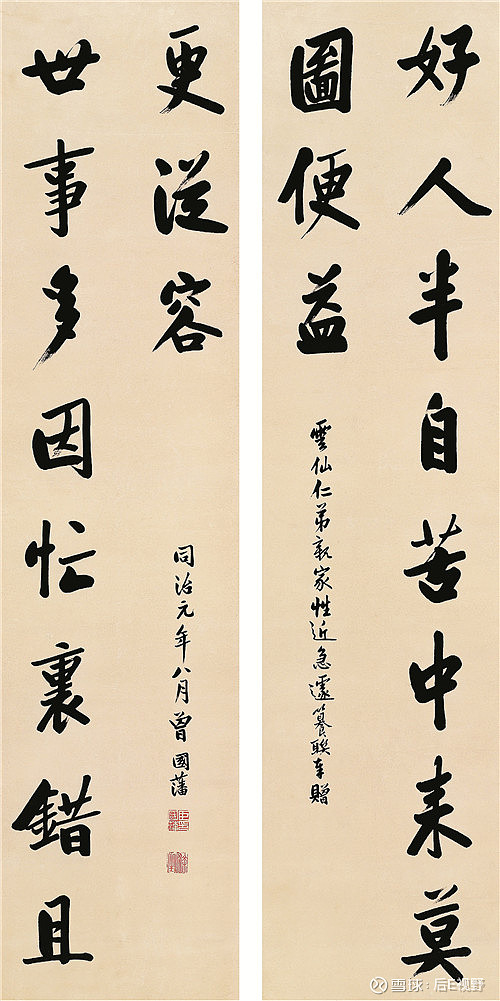 好人半自苦中来莫
圖便益
雲仙仁弟親家性近急遽纂聯奉贈
世事多因忙裏錯且
更從容
同治元年八月曾國藩
雪球：后E视野